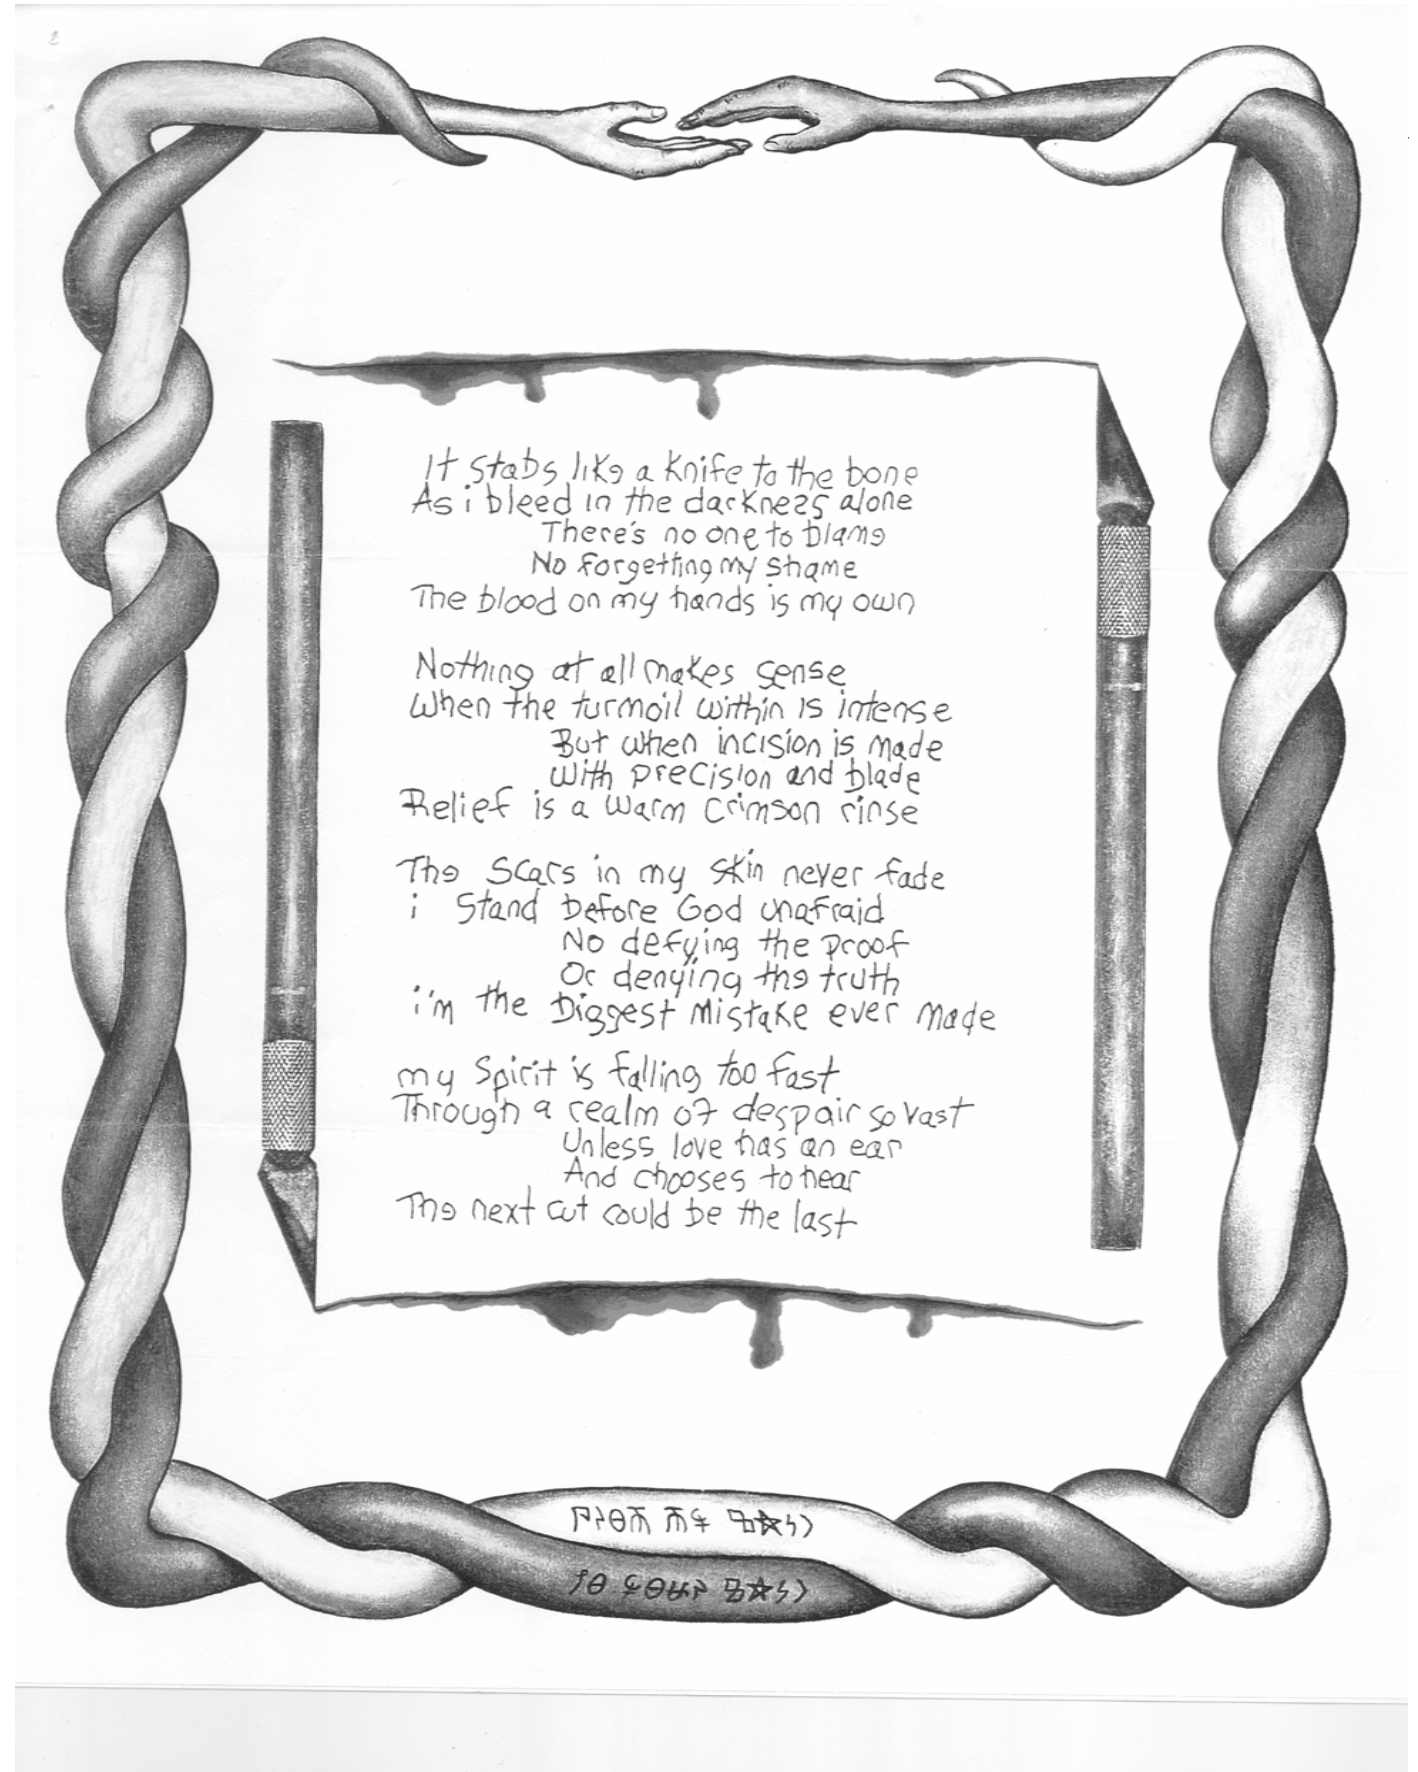 It stabs like a knife to the bone
As i bleed in the darkness alone
There's no one to blame
No forgetting my shame
The blood on my hands is my own
Nothing at all makes sense
When the turmoil within is intense
But when incision is made
With precision and blade
Relief is a warm crimson rinse
The Scars in my skin never fade
i Stand before God unafraid
No defying the proof
Or denying the truth
i'm the Biggest Mistake ever made
my Spirit is falling too fast
Through a realm of despair so vast
Unless love has an ear
And chooses to hear
The next cut could be the last